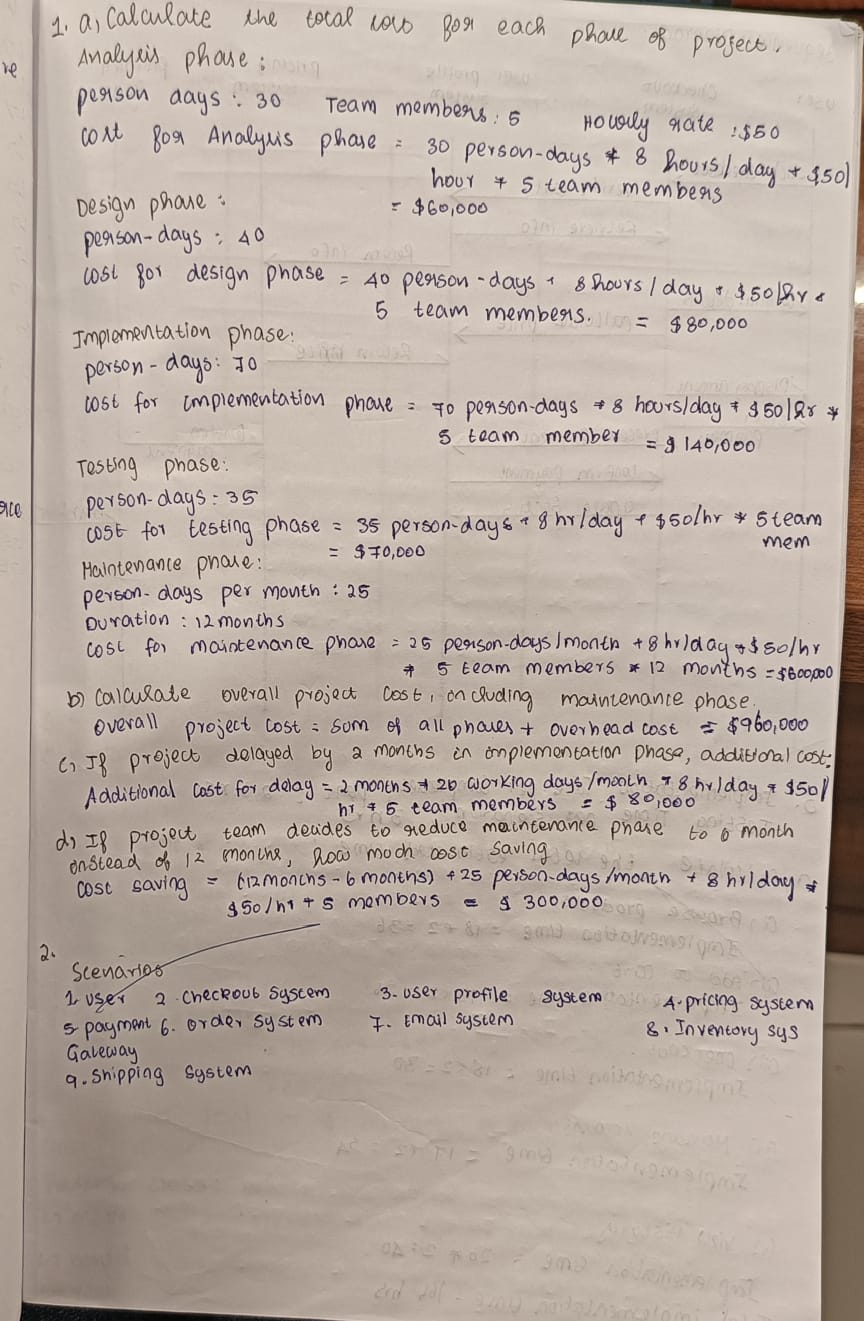 1. a, Calculate the total cost for each phase of project.
Analysis phase:
person days: 30 Team members: 5 Hourly rate: $50
cost for Analysis phase = 30 person-days * 8 hours/day * $50/
hour * 5 team members
= $60,000
Design phase:
person-days: 40
cost for design phase = 40 person-days * 8 hours/day * $50/hr *
5 team members. = $80,000
Implementation phase:
person-days: 70
cost for implementation phase = 70 person-days * 8 hours/day * $50/hr *
5 team member = $140,000
Testing phase:
person-days: 35
cost for testing phase = 35 person-days * 8 hr/day * $50/hr * 5 team
mem
= $70,000
Maintenance phase:
person-days per month: 25
Duration: 12 months
cost for maintenance phase = 25 person-days/month * 8 hr/day * $50/hr
* 5 team members * 12 months = $600,000
b) Calculate overall project cost, including maintenance phase.
overall project cost = sum of all phases + overhead cost = $960,000
c, If project delayed by 2 months in implementation phase, additional cost.
Additional cost for delay = 2 months * 20 working days/month * 8 hr/day * $50/
hr * 5 team members = $80,000
d, If project team decides to reduce maintenance phase to 6 month
instead of 12 months, how much cost saving
cost saving = (12 months - 6 months) * 25 person-days/month * 8 hr/day *
$50/hr * 5 members = $300,000
2.
Scenarios
1. user 2. checkout system 3. user profile system 4. pricing system
5. payment 6. order system 7. Email system 8. Inventory sys
Gateway
9. Shipping system